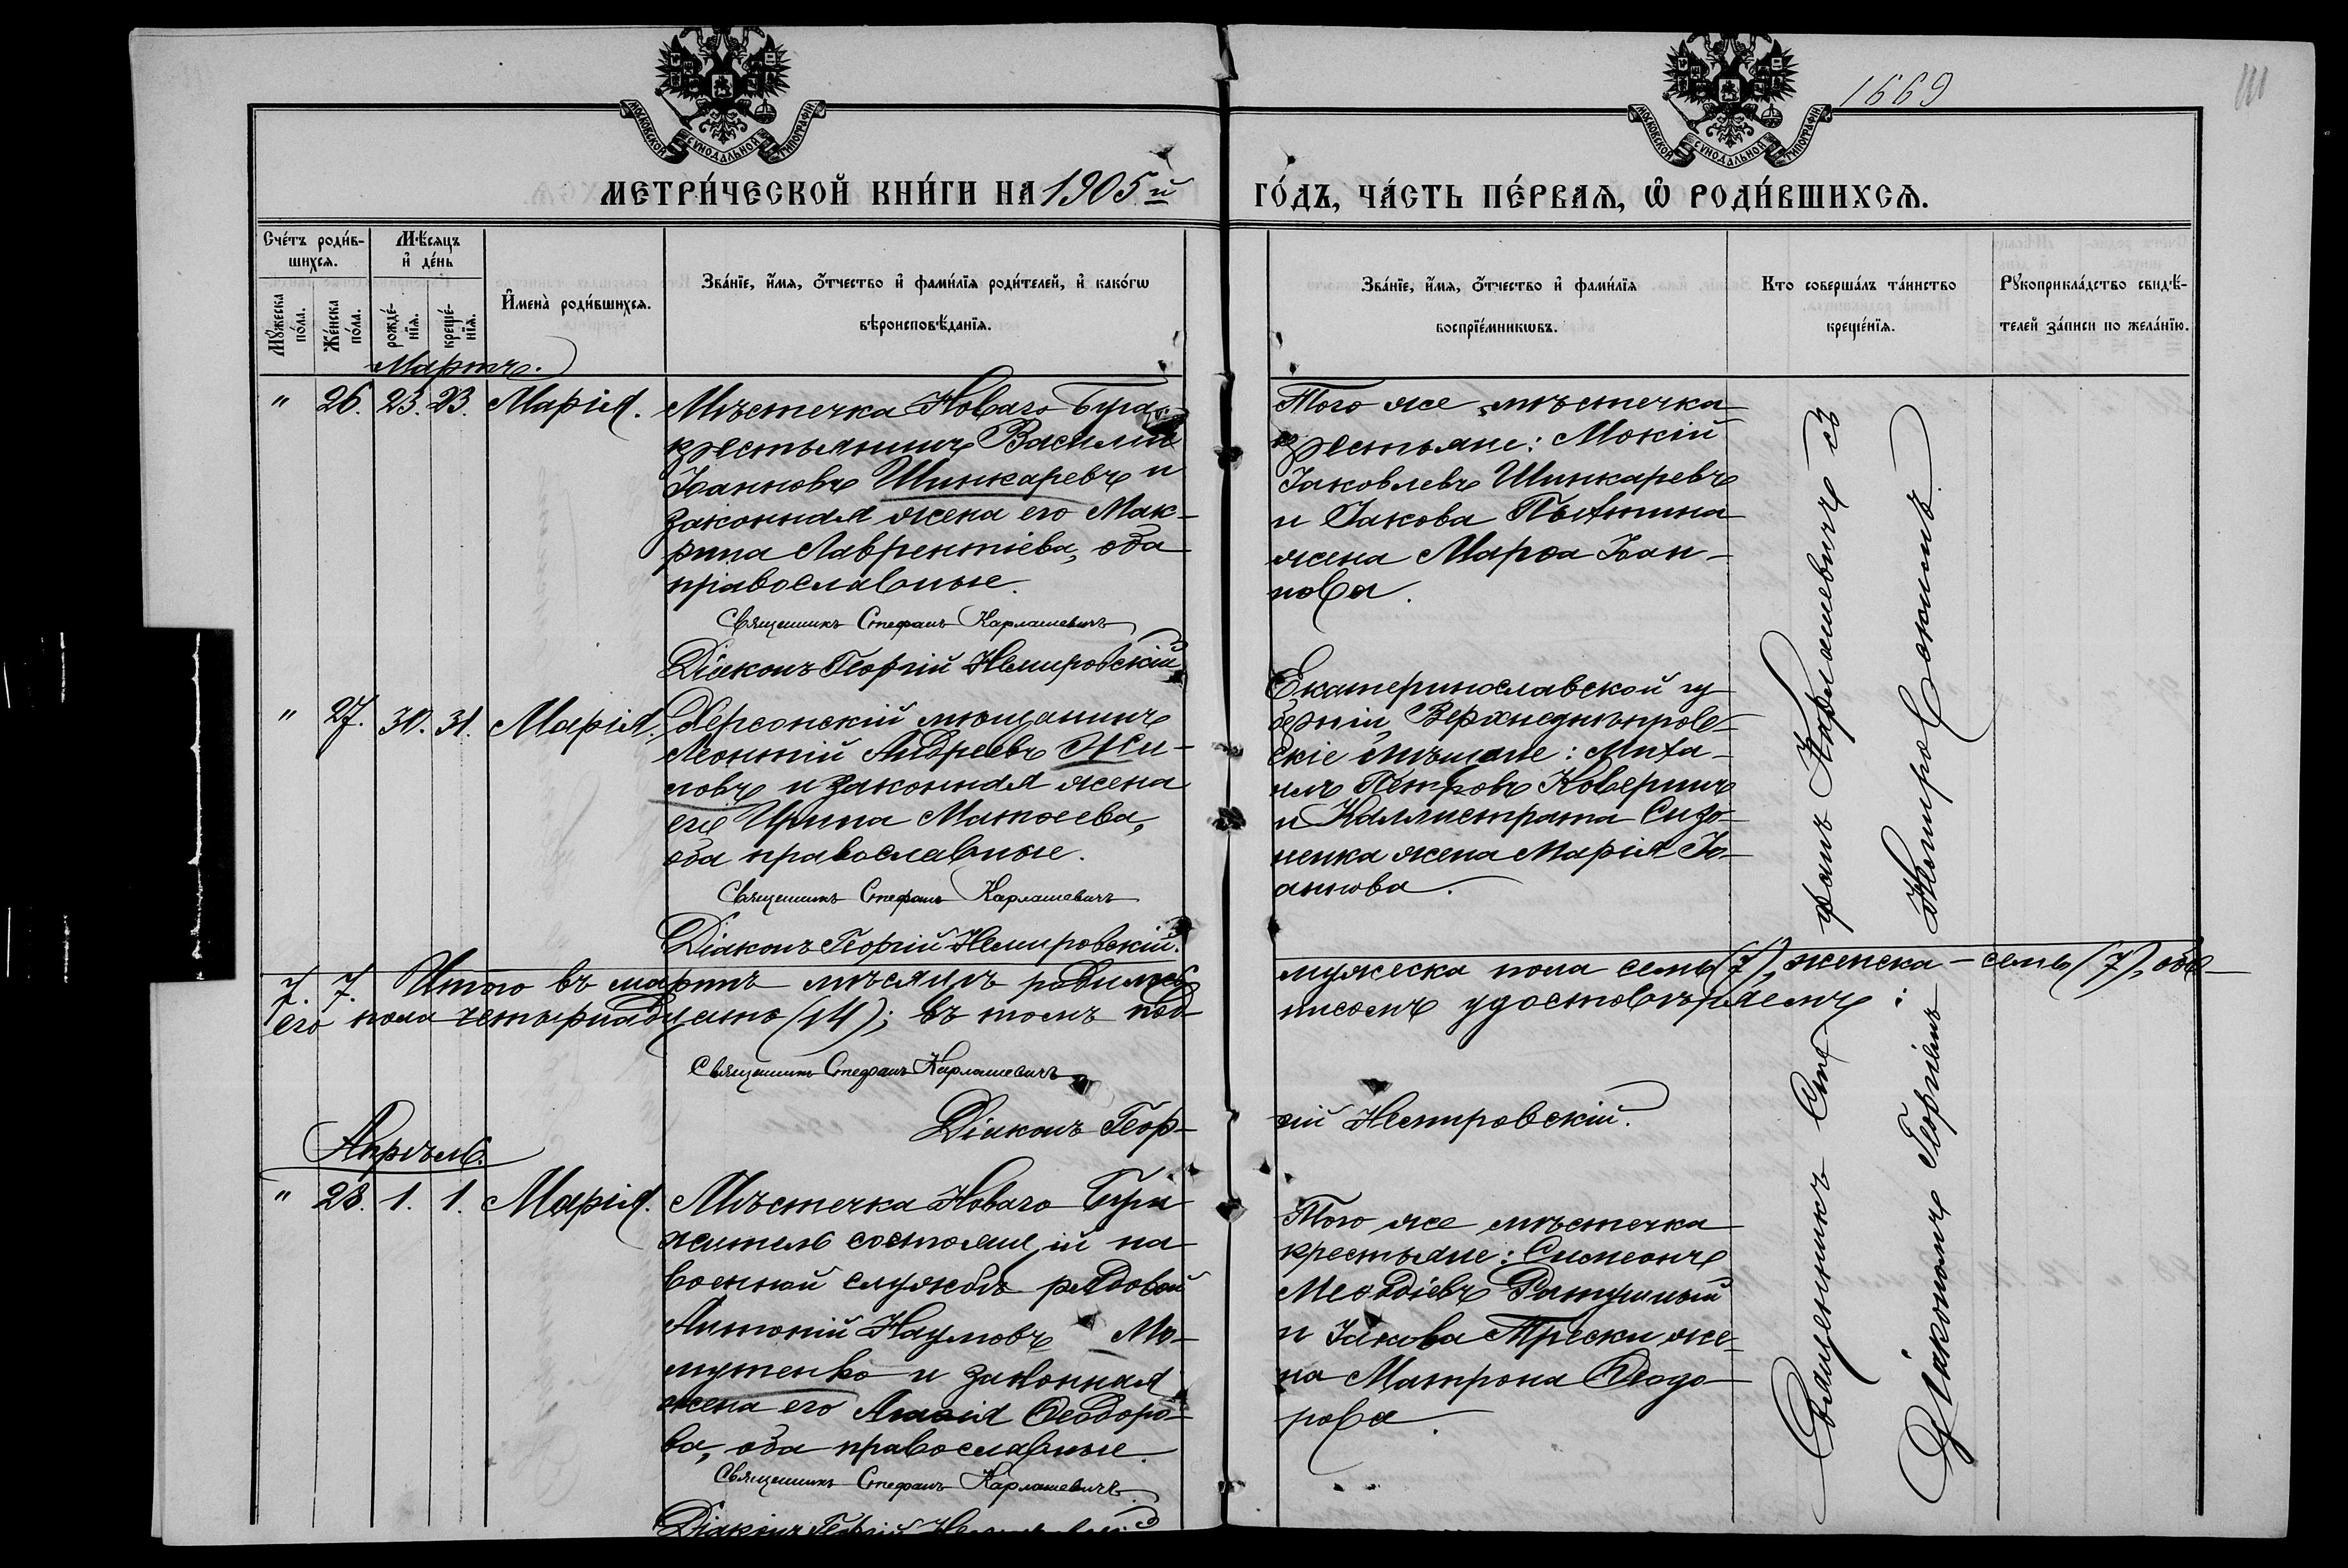 1669
111
МОСКОВСКОЙ СѴНОДАЛЬНОЙ ТИПОГРАФІИ
МОСКОВСКОЙ СѴНОДАЛЬНОЙ ТИПОГРАФІИ
МЕТРИ́ЧЕСКОЙ КНИ́ГИ НА 1905й ГО́ДЪ, ЧА́СТЬ ПЕ́РВАѦ, Ѡ҆ РОДИ́ВШИХСѦ.
Сче́тъ роди́в-
шихсѧ.
Мꙋ́жеска по́ла.
Же́нска по́ла.
Мѣ́сяцъ
и҆ де́нь
рожде́-
нїѧ.
креще́-
нїѧ.
И҆мена̀ роди́вшихсѧ.
Зва́нїе, и҆́мѧ, ѻ҆́тчество и҆ фами́лїѧ роди́телей, и҆ како́гѡ
вѣроисповѣ́данїѧ.
Зва́нїе, и҆́мѧ, ѻ҆́тчество и҆ фами́лїѧ
воспрїе́мникѡвъ.
Кто соверша́лъ та́инство
креще́нїѧ.
Рꙋкоприкла́дство свидѣ́-
телей за́писи по жела́нїю.
Мартъ.
" 26. 23. 23. Марія.
Мѣстечка Новаго Буга
крестьянинъ Василій
Іоанновъ Шинкаревъ и
законная жена его Мак-
рина Лаврентіева, оба
православные.
Священникъ Стефанъ Карлашевичъ
Діаконъ Георгій Немировскій
Того же мѣстечка
крестьяне: Мокій
Іаковлевъ Шинкаревъ
и Іакова Пѣхтина
жена Марѳа Іоан-
нова.
" 27. 30. 31. Марія.
Херсонскій мѣщанинъ
Леонтій Андреевъ Жи-
ловъ и законная жена
его Ирина Матѳеева,
оба православные.
Священникъ Стефанъ Карлашевичъ
Діаконъ Георгій Немировскій.
Екатеринославской гу-
берніи, Верхнеднѣпров-
скіе мѣщане: Миха-
илъ Петровъ Ковернинъ
и Каллистрата Сидо-
ненка жена Марія Іо-
аннова.
7. 7. Итого въ мартѣ мѣсяцѣ родилось мужеска пола семь (7), женска — семь (7), обо-
его пола четырнадцать (14); въ томъ под- писомъ удостовѣряемъ:
Священникъ Стефанъ Карлашевичъ
Діаконъ Геор- гій Немировскій.
Апрѣль.
" 28. 1. 1. Марія.
Мѣстечка Новаго Буга
житель состоящій на
военной службѣ рядовой
Антоній Наумовъ Мо-
мутенко и законная
жена его Агаѳія Ѳеодоро-
ва, оба православные.
Священникъ Стефанъ Карлашевичъ
Діаконъ Георгій Немировскій
Того же мѣстечка
крестьяне: Симеонъ
Меѳодіевъ Ратушный
и Іакова Трески же-
на Матрона Ѳеодо-
рова.
Священникъ Сте-
фанъ Карлашевичъ съ
Діакономъ Георгіемъ
Немировскимъ.